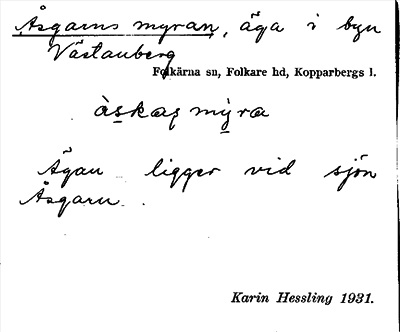 Åsgarns myran, äga i byn
Västanberg
Folkärna sn, Folkare hd, Kopparbergs l.
àskas mỳra
Ägan ligger vid sjön
Åsgarn.
Karin Hessling 1931.